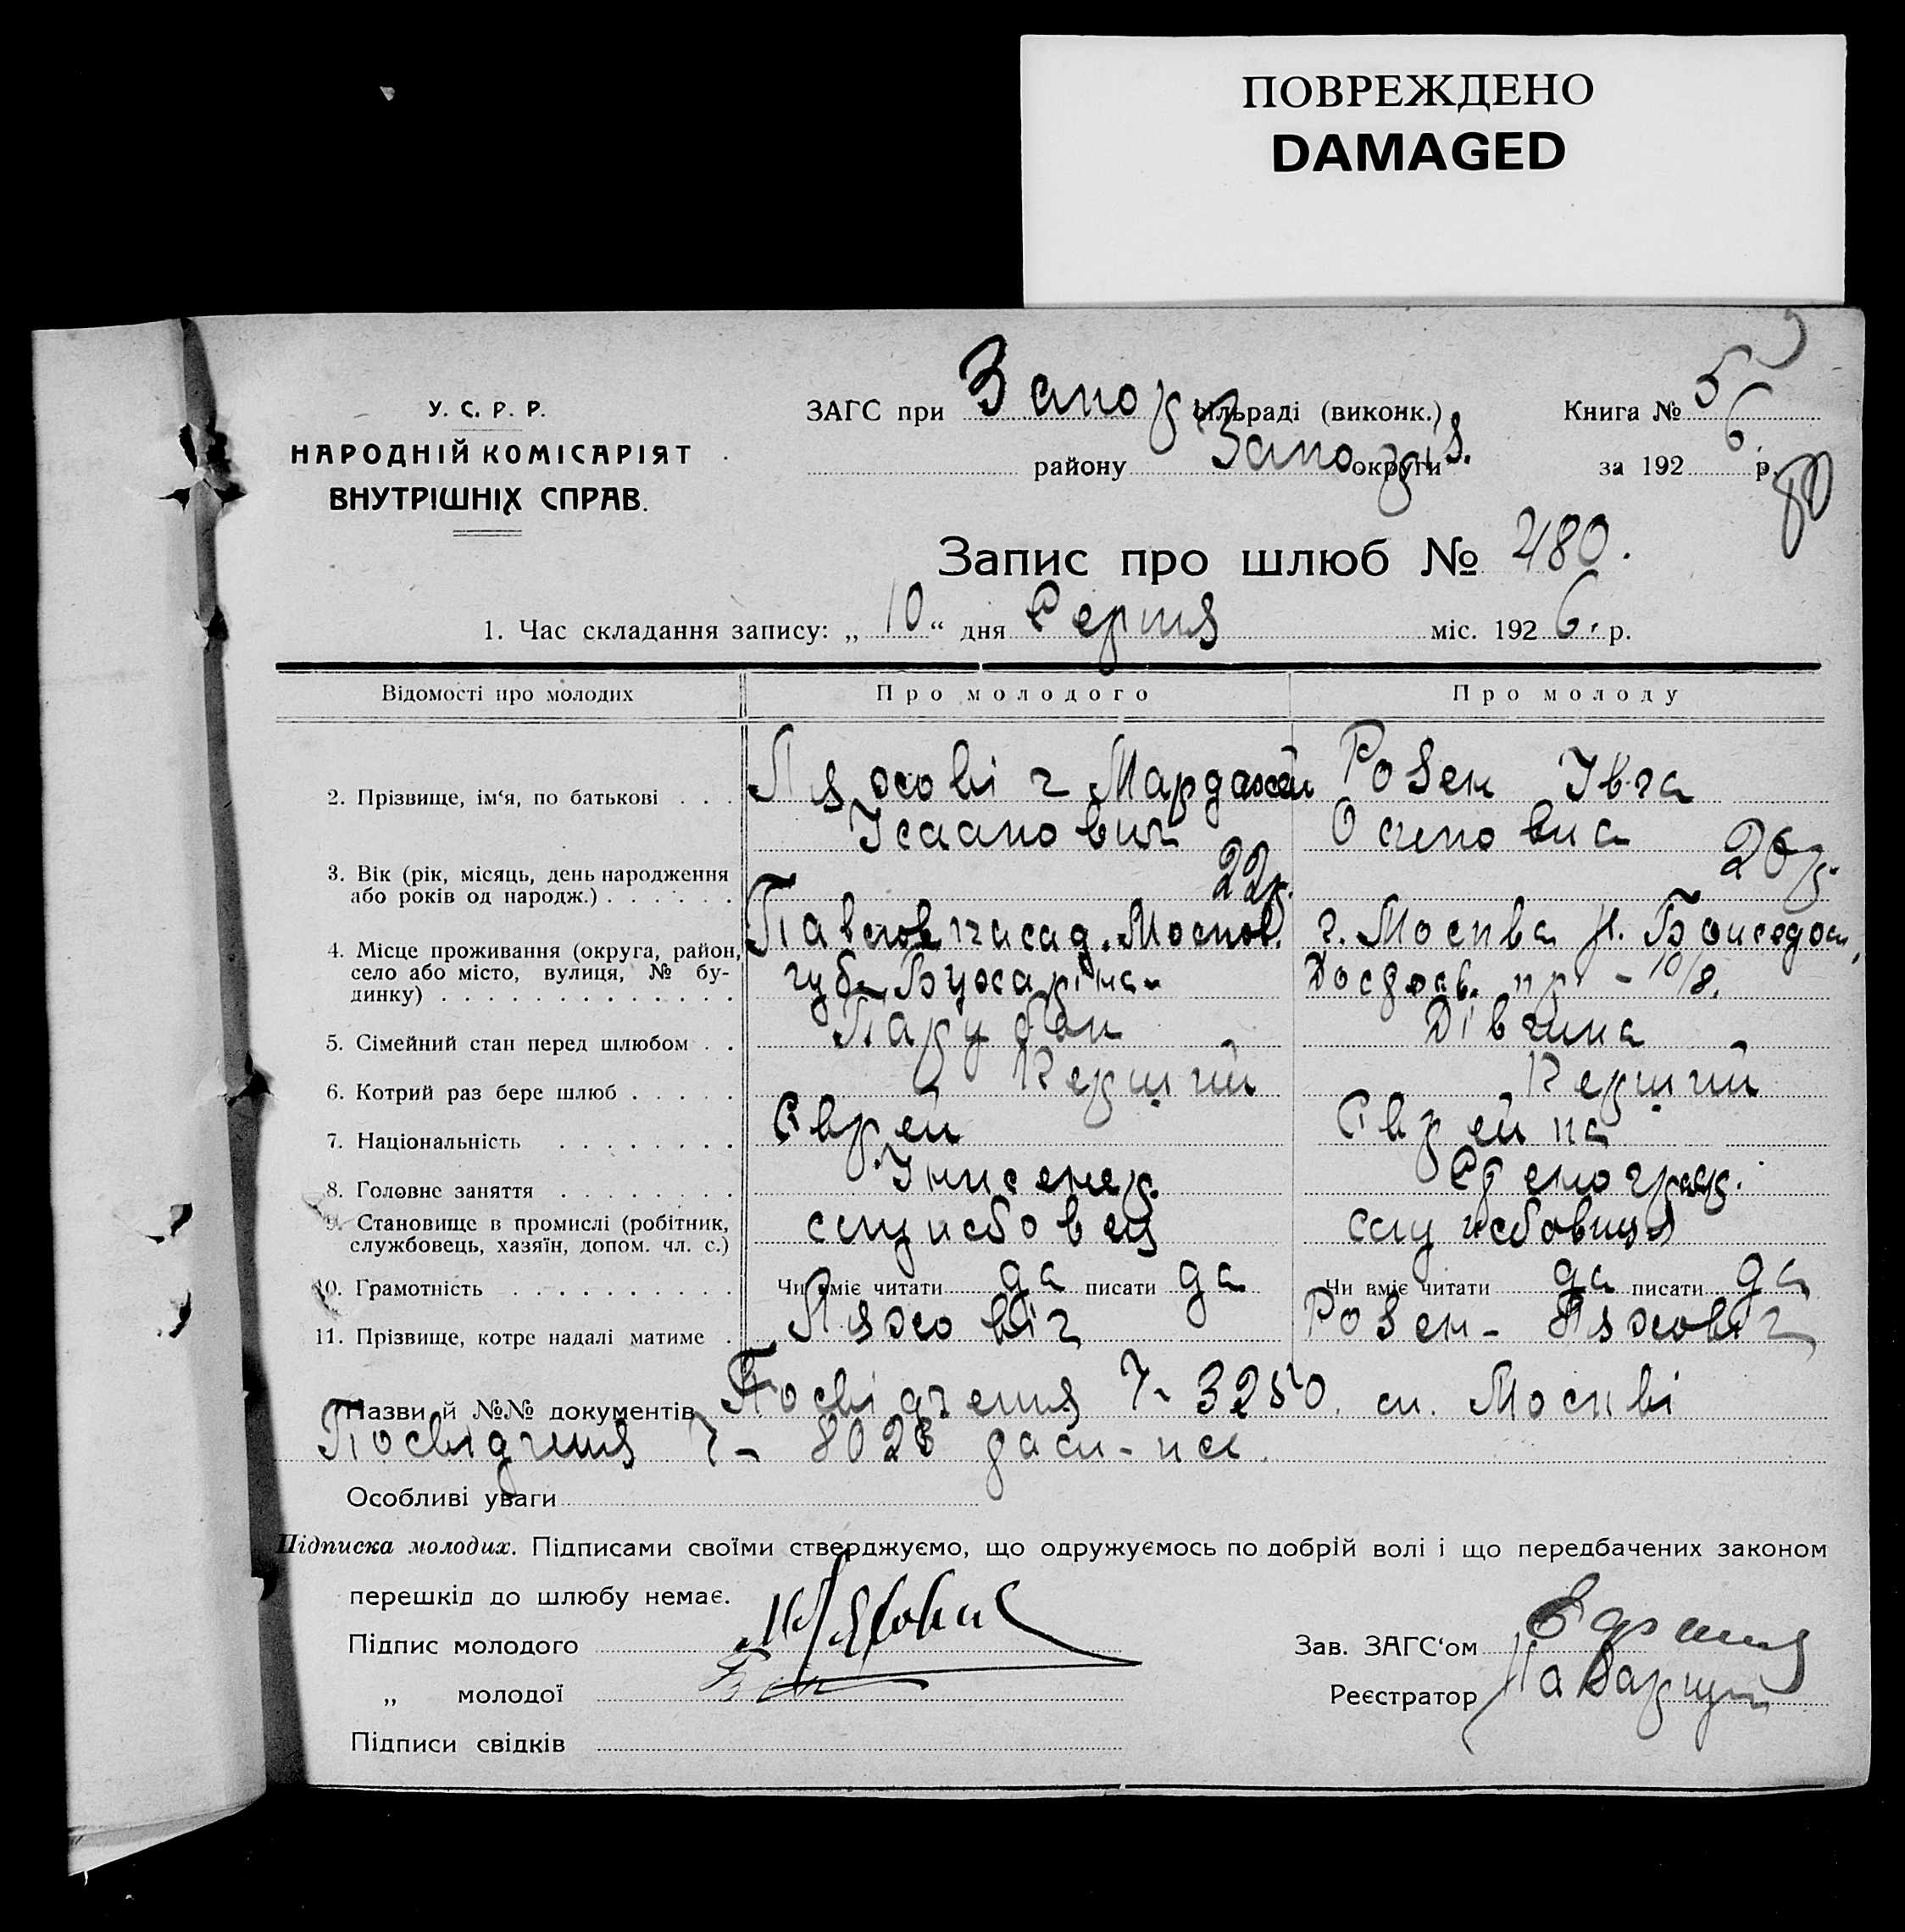 ПОВРЕЖДЕНО
DAMAGED
У. С. Р. Р.
НАРОДНІЙ КОМІСАРІЯТ
ВНУТРІШНІХ СПРАВ.
ЗАГС при Запор сільраді (виконк.)
району Запоріз. округи
Книга № 5
за 1926 р.
80
Запис про шлюб № 480.
1. Час складання запису: „10“ дня Серпня міс. 1926. р.
Відомості про молодих Про молодого Про молоду
2. Прізвище, ім‘я, по батькові . . . Ляховіч Мардахай Розен Івга
Ісаанович Осиповна
3. Вік (рік, місяць, день народження
або років од народж.) . . . . . . 22р. 20р.
4. Місце проживання (округа, район, село або місто, вулиця, № будинку) Москов. г. Москва
губ. Бухаріна
5. Сімейний стан перед шлюбом . . Парубок Дівчина
6. Котрий раз бере шлюб . . . . . Перший Перший
7. Національність . . . . . . . . Єврей Єврейка
8. Головне заняття . . . . . . . . Інженер. Стеногр.
9. Становище в промислі (робітник,
службовець, хазяїн, допом. чл. с.) службовец службовиця
10. Грамотність . . . . . . . . . . Чи вміє читати да писати да Чи вміє читати да писати да
11. Прізвище, котре надалі матиме . Ляховіч Розен-Ляховіч
Назви й №№ документів Посвідчення 3250. м. Москві
Посвідчення 8028
Особливі уваги
Підписка молодих. Підписами своїми стверджуємо, що одружуємось по добрій волі і що передбачених законом
перешкід до шлюбу немає.
Підпис молодого МЛяхович
„ молодої
Підписи свідків
Зав. ЗАГС‘ом
Реєстратор